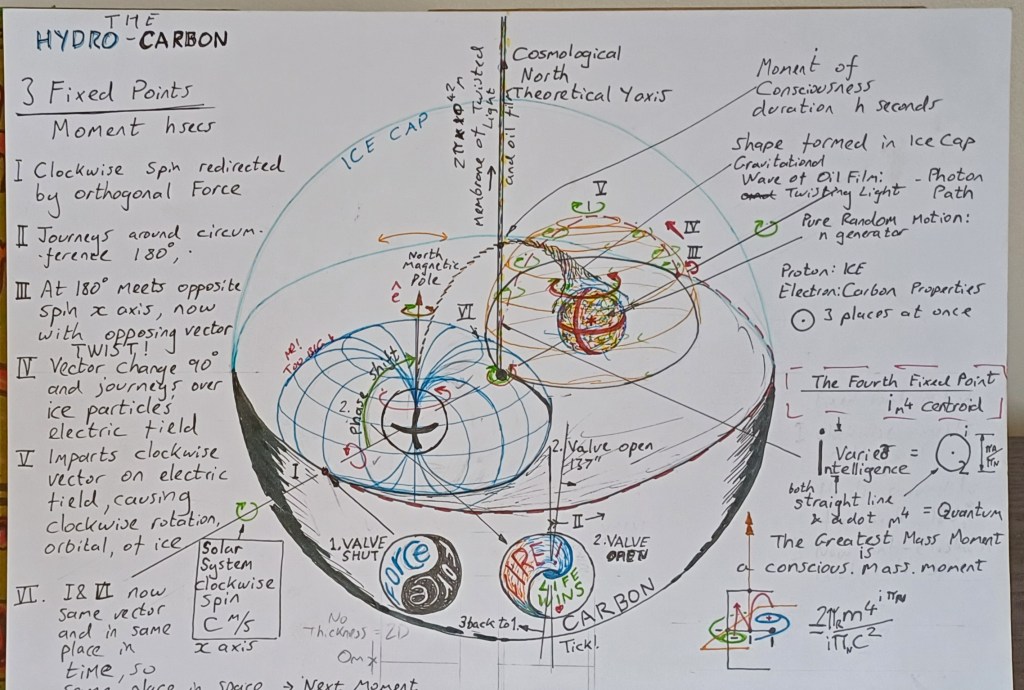 THE
HYDRO-CARBON
3 Fixed Points
Moment hsecs
I Clockwise Spin redirected
by orthogonal Force
II Journeys around circum-
-ference 180°,
III At 180° meets opposite
spin x axis, now
with opposing vector
TWIST!
IV Vector change 90°
and journeys over
ice particles
electric field
V Imparts clockwise
vector on electric
field, causing
clockwise rotation,
orbital, of ice
VI. I & VI now
same vector
and in same
place in
time, so
same place in space → Next Moment
Solar
System
clockwise
Spin
C m/s
x axis
ICE CAP
membrane of Twisted
Light
and oil film
Cosmological
North
Theoretical Y axis
North
Magnetic
Pole
ê
VI
V
IV
III
ME!
TOO BIG
2.
phase shift
I
2. Valve open
137"
II →
1. VALVE
SHUT
Force
2. VALVE
OPEN
LIFE
WINS
CARBON
3 back to 1.
Tick!
No
Thickness = 2D
0m x
Moment of
Consciousness
duration h seconds
Shape formed in Ice Cap
Gravitational
Wave of Oil Film:
and Twisting Light
- Photon
Path
Pure Random Motion:
n generator
Proton: ICE
Electron: Carbon Properties
3 places at once
The Fourth Fixed Point
i m4 centroid
Varies
Intelligence =
both
straight line
x a dot m4 = Quantum
The Greatest Mass Moment
is
a conscious. Mass. moment